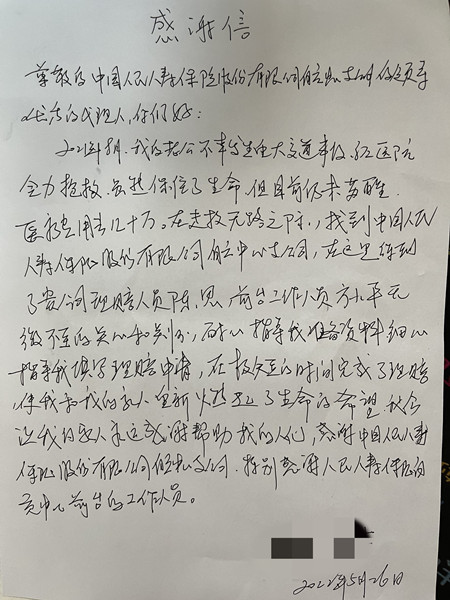 感谢信
尊敬的中国人民人寿保险股份有限公司自贡中心支公司的领导
的代理人,你们好:
2021年8月,我的老公不幸发生重大交通事故,经医院
全力抢救,虽然保住了生命,但目前仍未苏醒,
医疗费用去几十万。在走投无路之际,找到中国人民
人寿保险股份有限公司自贡中心支公司,在这里得到
了贵公司理赔人员陈思,前台工作人员方小平无
微不至的关心和关怀,耐心指导我准备资料细心
指导我填写理赔申请,在极短的时间完成了理赔
,使我和我的家人重新燃起了生命的希望
让我的家人永远感谢帮助我的人们,感谢中国人民人寿
保险股份有限公司自贡支公司。特别感谢人民人寿保险自
贡中心前台的工作人员。
2022年5月26日